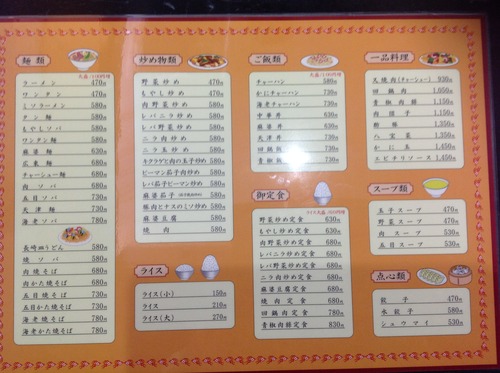 麺 類
大盛/100円増
ラーメン 470円
ワンタン 470円
ミソラーメン 580円
タン麺 580円
もやしソバ 580円
ワンタン麺 580円
麻婆麺 630円
広東麺 680円
チャーシュー麺 680円
肉ソバ 680円
五目ソバ 730円
天津麺 730円
海老ソバ 780円
長崎皿うどん 580円
焼ソバ 580円
肉焼そば 680円
肉かた焼そば 680円
五目焼そば 730円
五目かた焼そば 730円
海老焼そば 780円
海老かた焼そば 780円
炒め物類
野菜炒め 470円
もやし炒め 470円
肉野菜炒め 580円
レバニラ炒め 580円
レバ野菜炒め 580円
ニラ肉炒め 580円
ニラ玉炒め 580円
キクラゲと肉の玉子炒め 580円
ピーマン茄子肉炒め 580円
レバ茄子ピーマン炒め 580円
麻婆茄子 580円
豚肉とナスのミソ炒め 580円
麻婆豆腐 580円
焼肉 580円
ライス
ライス(小) 150円
ライス 210円
ライス(大) 270円
ご飯類
大盛/100円増
チャーハン 580円
かにチャーハン 730円
海老チャーハン 730円
中華丼 630円
麻婆丼 630円
天津丼 730円
回鍋飯
青椒飯
御定食
ライス大盛
野菜炒め定食 630円
もやし炒め定食 630円
肉野菜炒め定食 680円
レバニラ炒め定食 680円
レバ野菜炒め定食 680円
ニラ肉炒め定食 680円
麻婆豆腐定食 680円
焼肉定食 680円
回鍋肉定食 780円
青椒肉絲定食 830円
一品料理
叉焼肉(チャーシュー) 930円
回鍋肉 1,050円
青椒肉絲 1,150円
肉団子 1,150円
酢豚 1,150円
八宝菜 1,150円
かに玉 1,150円
エビチリソース 1,450円
スープ類
玉子スープ 470円
野菜スープ 470円
肉スープ 530円
五目スープ 530円
点心類
餃子 470円
水餃子 580円
シュウマイ 530円